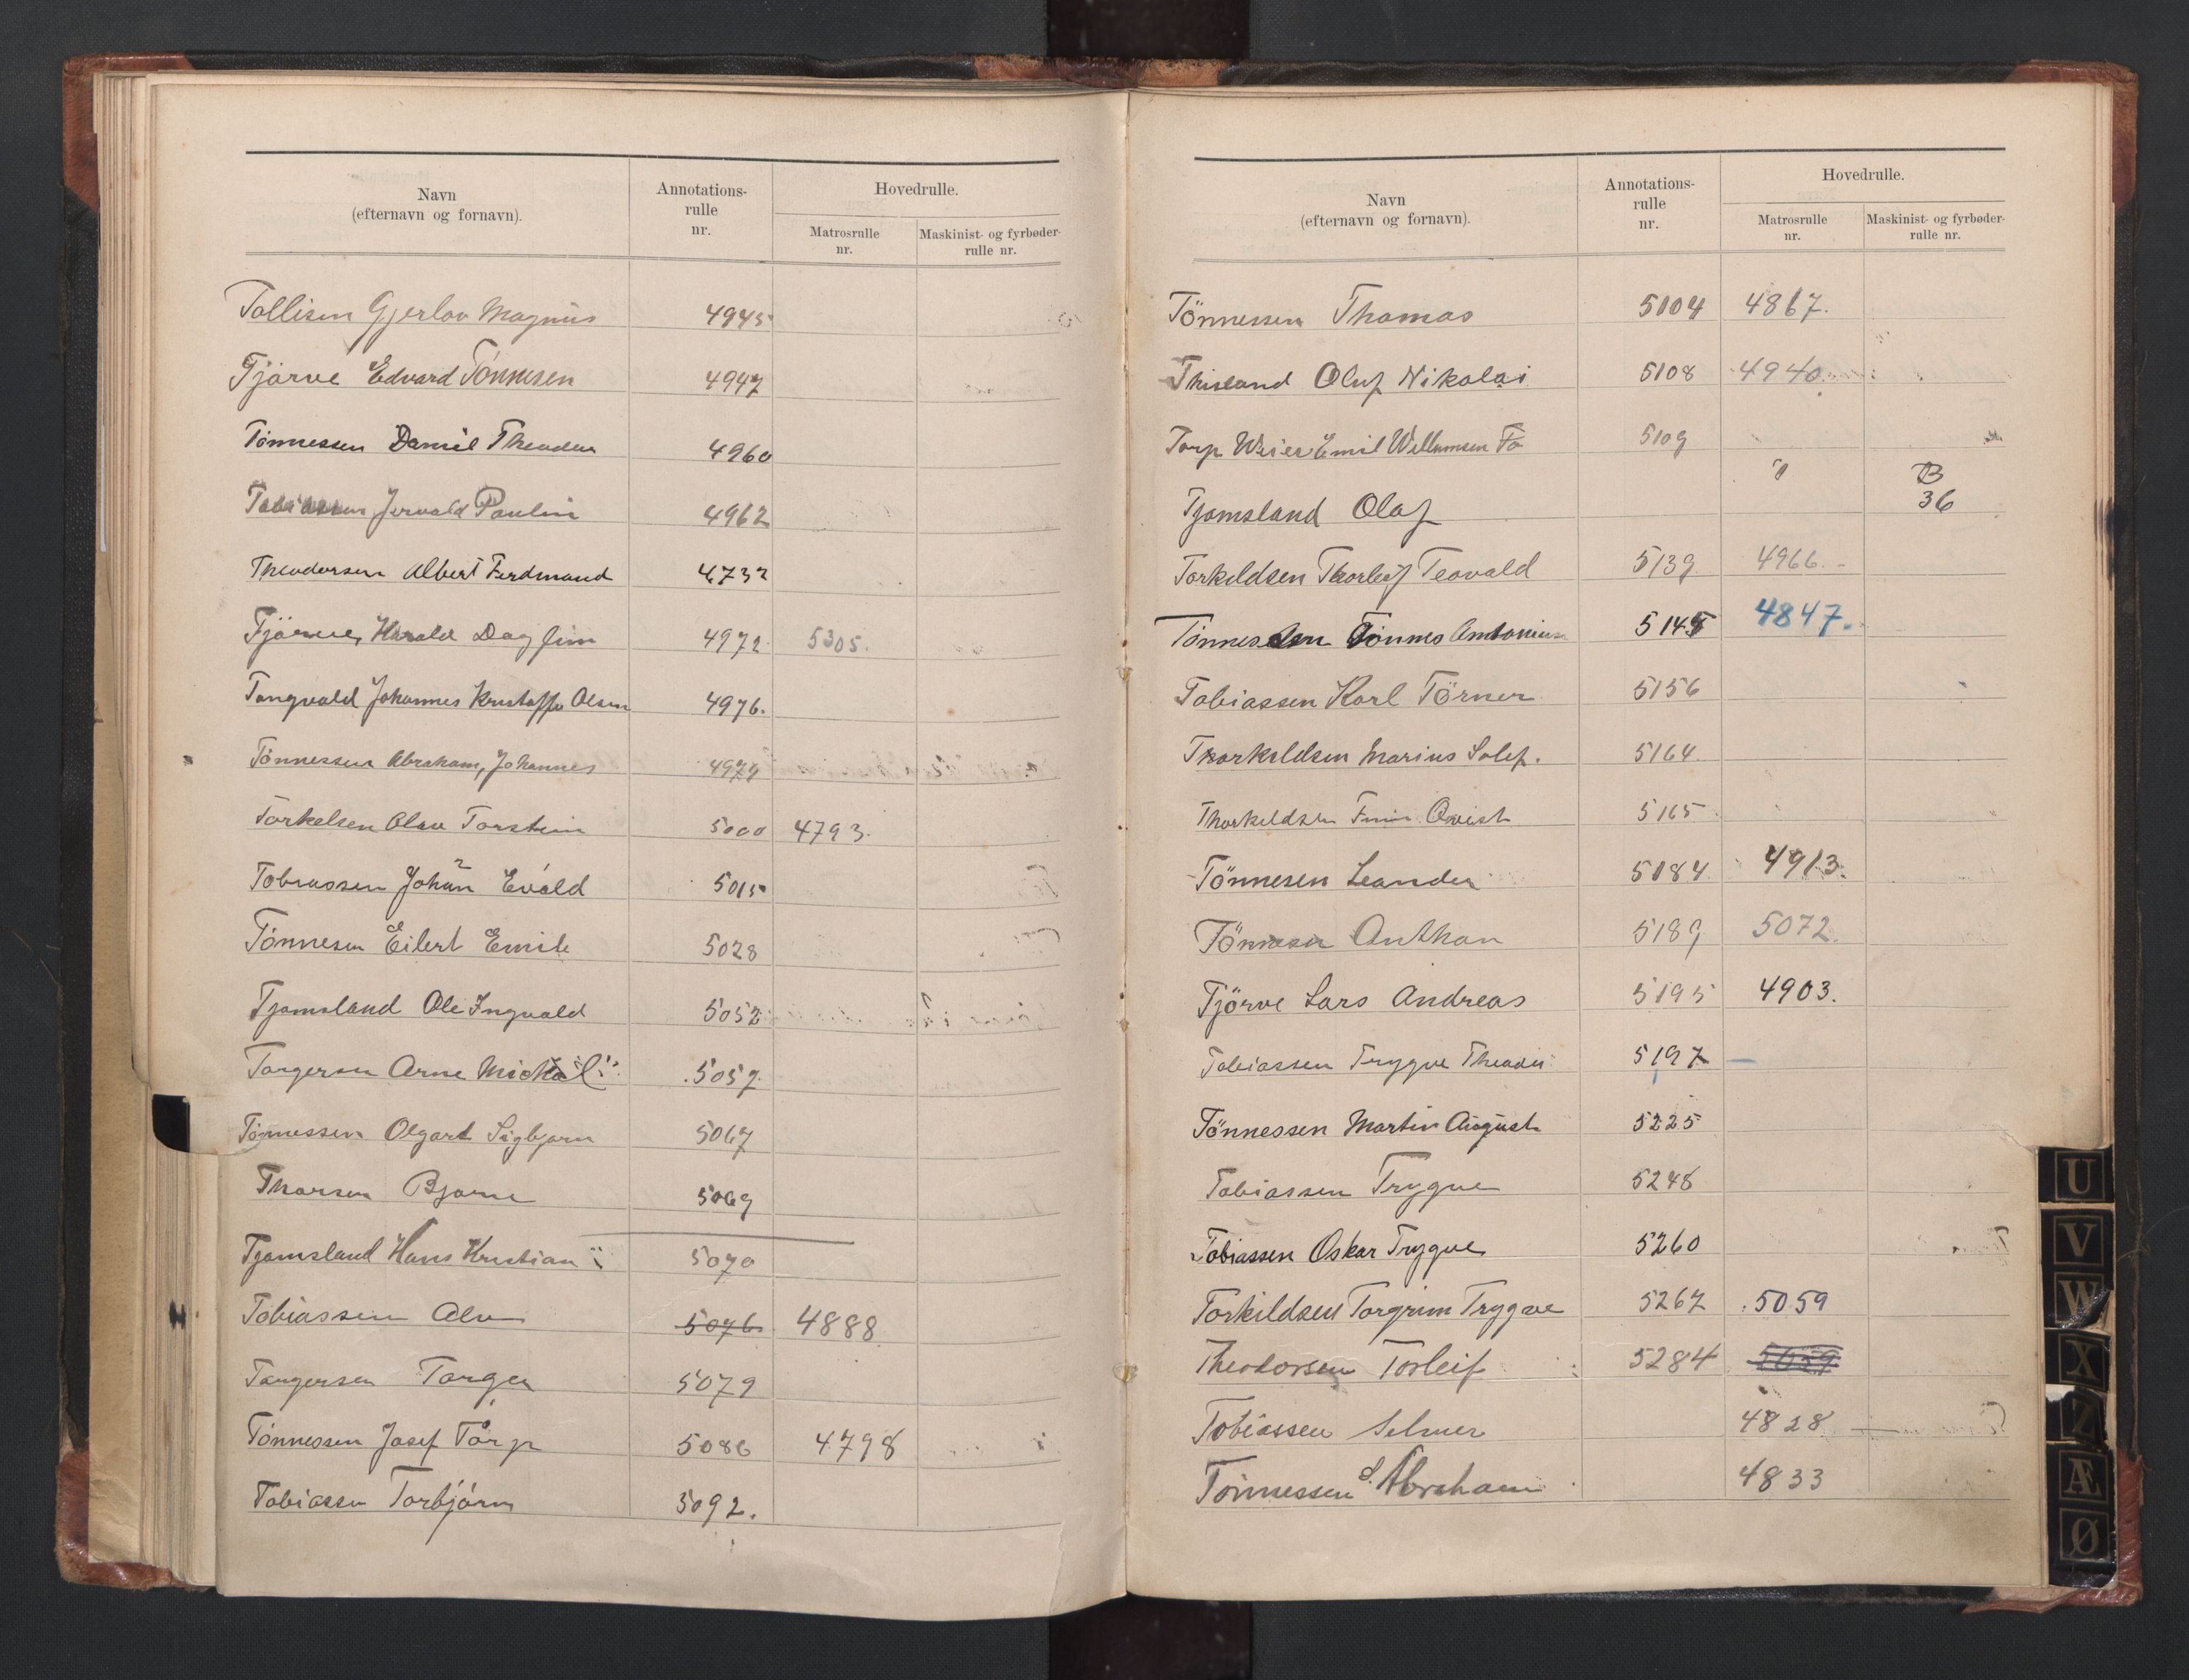 Navn
(efternavn og fornavn).
Annotations-
rulle
nr.
Hovedrulle.
Matrosrulle
nr.
Maskinist- og fyrbøder-
rulle nr.
Tollisen Gjerlov Magnus 4945
Tjørve Edvard Tönnesen 4947
Tönnessen Daniel Theodor 4960
Tobiassen Jervald Paulin 4962
Theodorsen Albert Ferdinand 4732
Tjörve, Harald Dagfinn 4972 5305.
Tangvald Johannes Kristoffer Olsen 4976.
Tönnessen Abraham, Johannes 4979
Torkelsen Olav Torstein 5000 4793.
Tobiassen Johan Evald 5015
Tönnesen Eilert Emil 5028
Tjomsland Ole Ingvald 5052
Torgersen Arne Michal 5057.
Tönnessen Olgart Sigbjørn 5067
Thorsen Bjarne 5069
Tjomsland Hans Kristian 5070
Tobiassen Alv 5076 4888
Torgersen Torger 5079
Tönnessen Josef Torp 5086 4798
Tobiassen Torbjörn 5092.
Navn
(efternavn og fornavn).
Annotations-
rulle
nr.
Hovedrulle.
Matrosrulle
nr.
Maskinist- og fyrbøder-
rulle nr.
Tönnessen Thomas 5104 4867.
Thisland Oluf Nikolai 5108 4940.
Torp Weier Emil Wellumsen To 5109
B
Tjomsland Olaf 36
Torkildsen Thorleif Teovald 5139 4966.
Tönnessen Tönnes Antonius 5145 4847.
Tobiassen Karl Törner 5156
Thorkildsen Marius Solef. 5164
Thorkildsen Finn Qvist 5165
Tönnesen Leander 5184 4913.
Tönnesen Anthon 5189 5072.
Tjörve Lars Andreas 5195 4903.
Tobiassen Trygve Theodor 5197
Tönnessen Martin August 5225
Tobiassen Trygve 5248
Tobiassen Oskar Trygve 5260
Torkildsen Torgrim Trygve 5267 5059
Theodorsen Torleif 5284 5059
Tobiassen Selmer 4828
Tönnessen S. Abraham 4833
U
V
W
X
Z
Æ
Ø